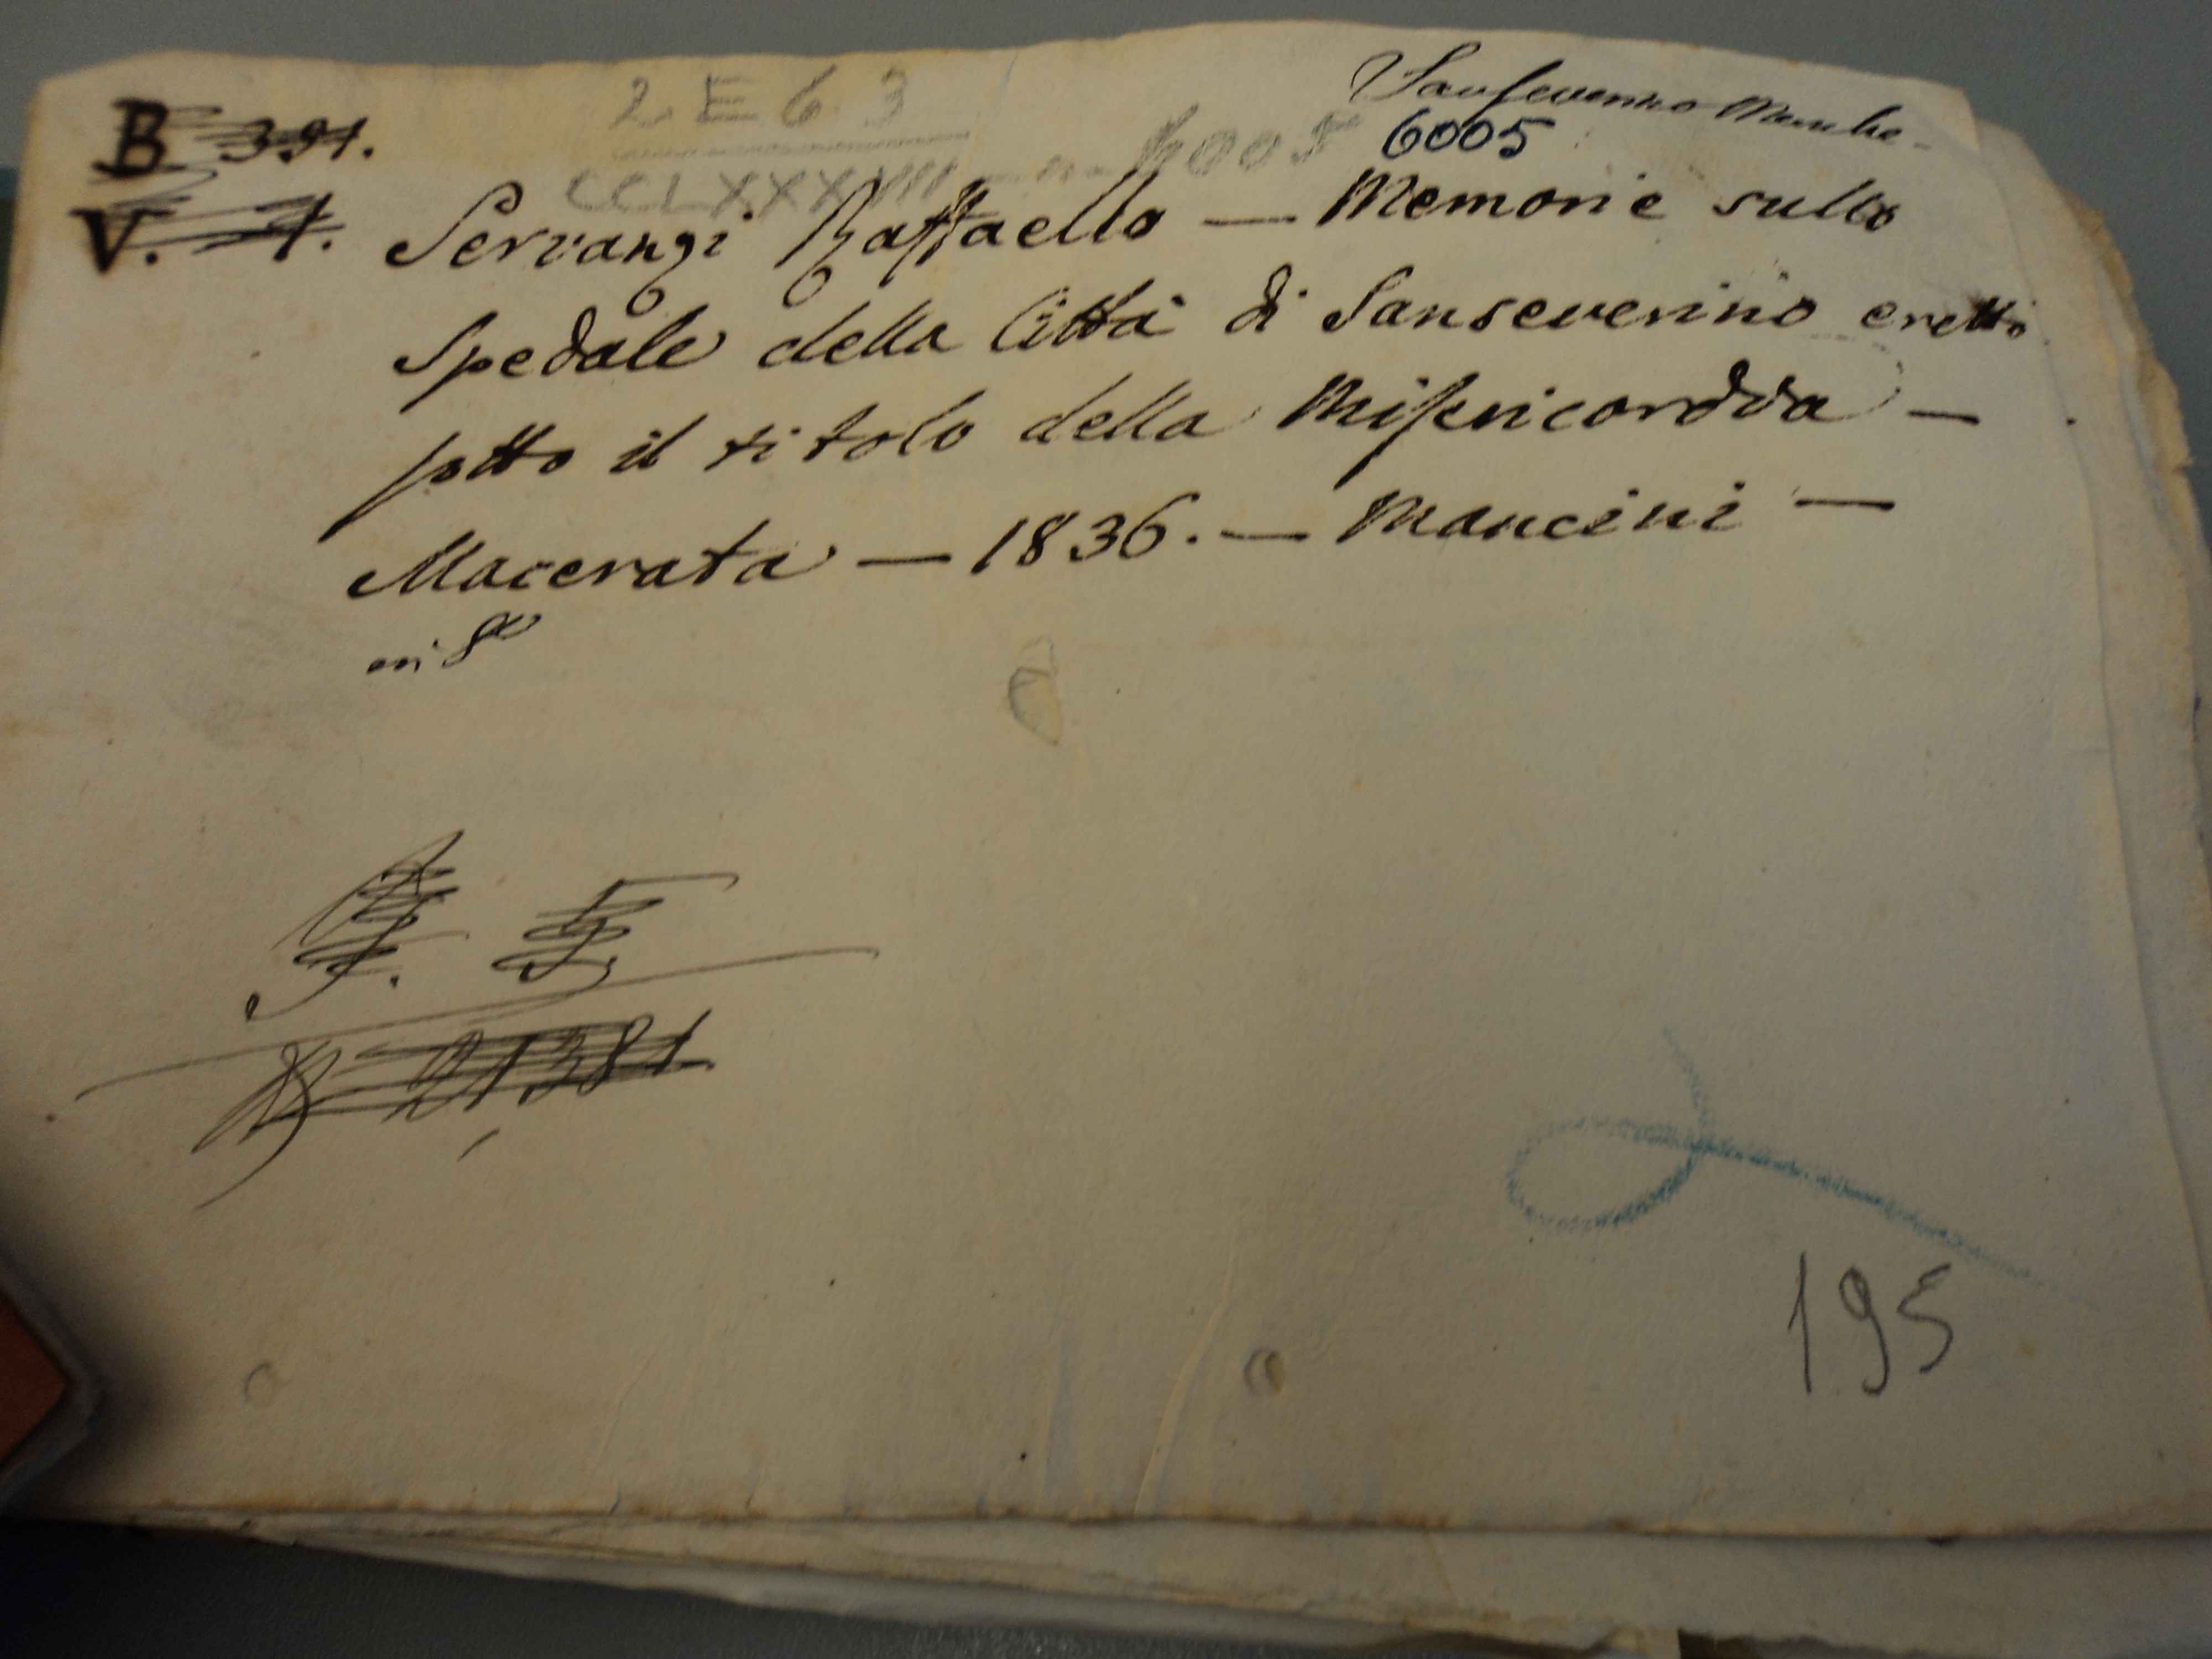 Sanseverino Marche -
2 E 6 3
B 391.
CCLXXXVIII - n. 6005
6005
V. 1.
Servanzi Raffaello — Memorie sullo
Spedale della Città di Sanseverino eretto
sotto il titolo della Misericordia —
Macerata — 1836. — Mancini —
in 8º
21381
195